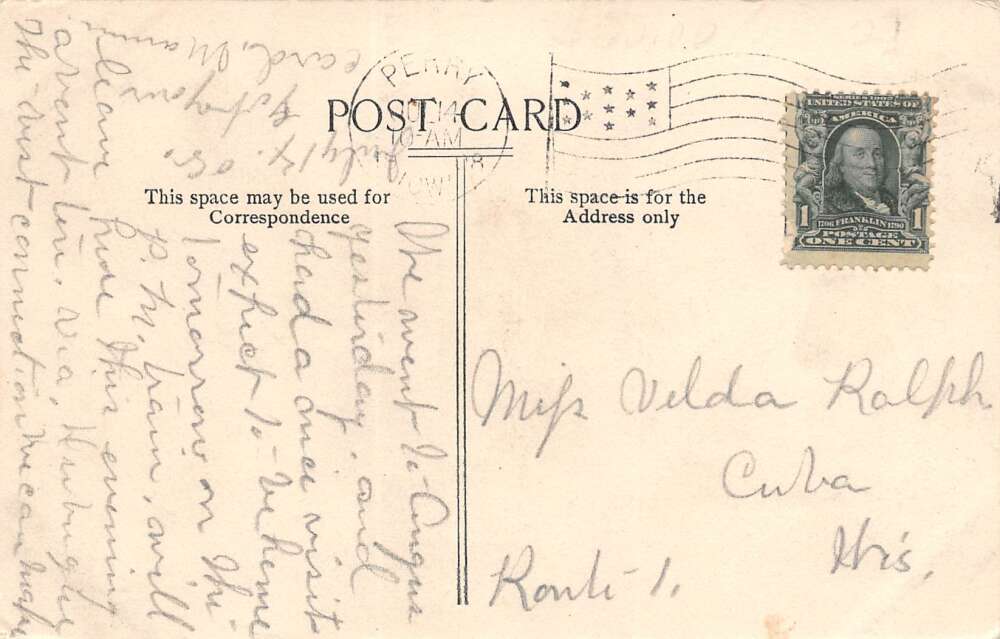 POST CARD
This space may be used for
Correspondence
This space is for the
Address only
PERRY
14
10-AM
IOWA
SERIES 1902
UNITED STATES OF
AMERICA
1 1
1706 FRANKLIN 1790
POSTAGE
ONE CENT
Miss Velda Ralph
Cuba
Wis,
Route 1.
July 14. 08.
We went to Angus
yesterday, and
had a nice visit
expect to be home
tomorrow on the
P. M. train, will
leave here this evening
arvent time, via,
The best connection we can make
Got your
card, Mamie